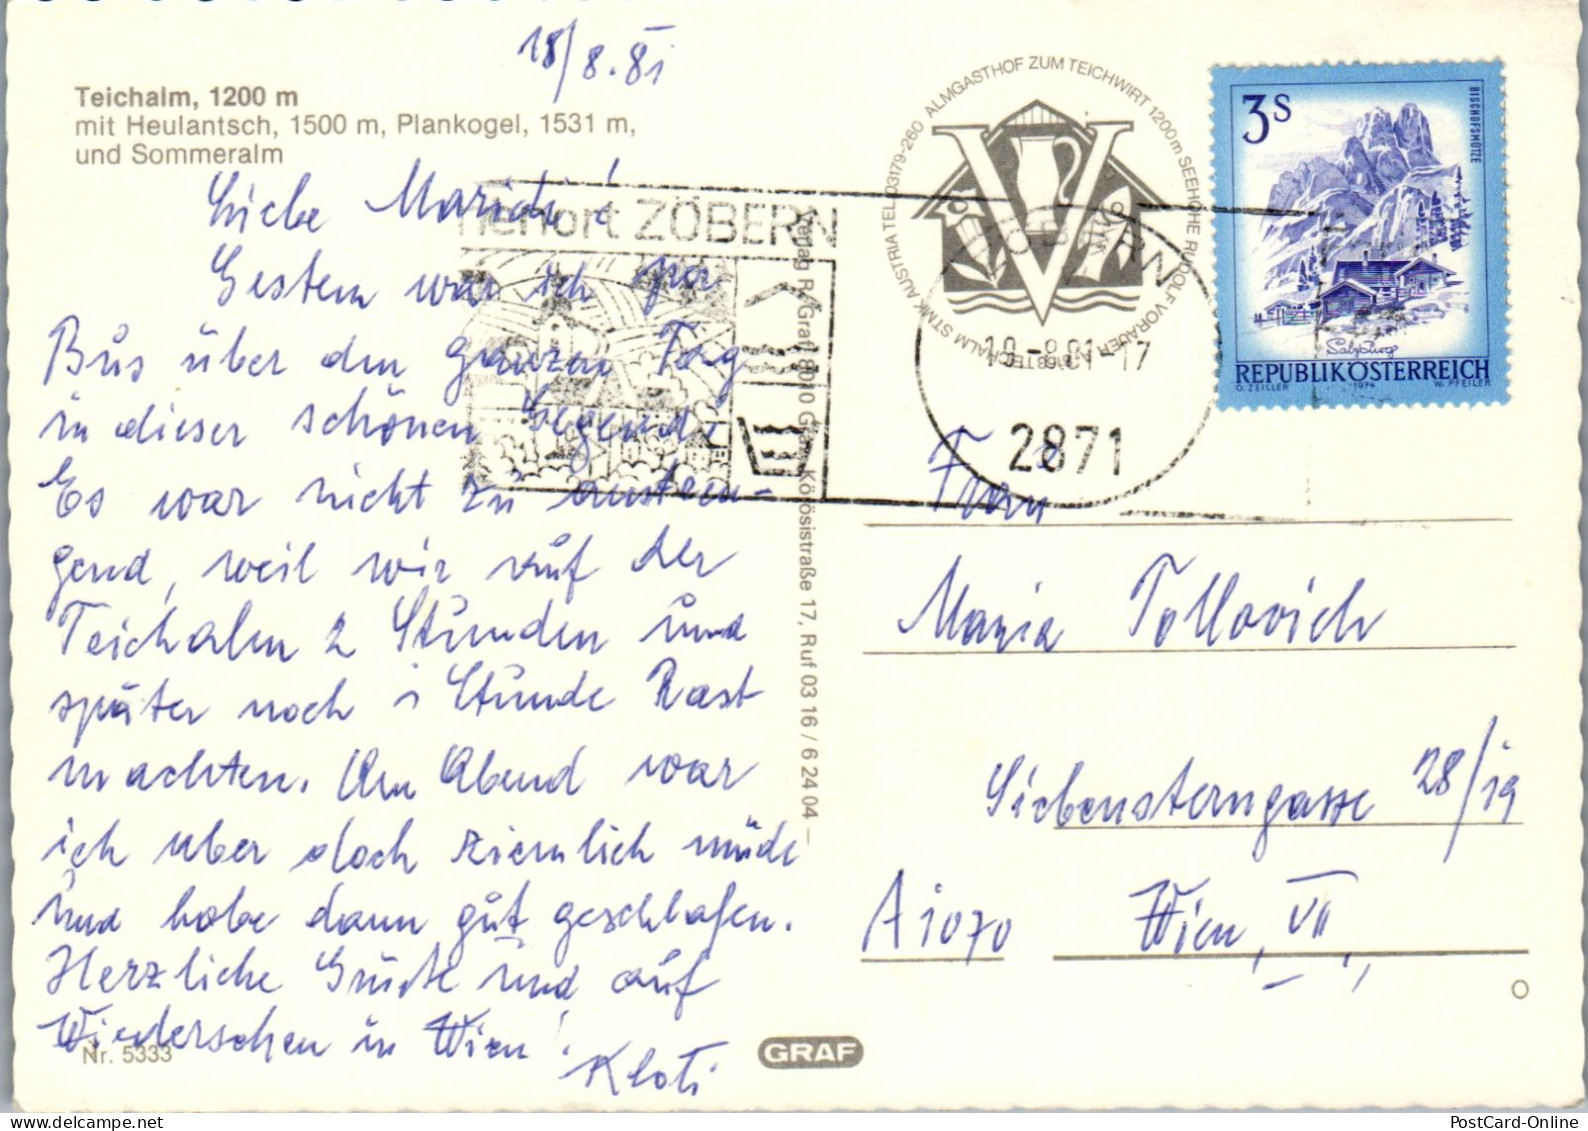 18/8.81
Teichalm, 1200 m
mit Heulantsch, 1500 m, Plankogel, 1531 m,
und Sommeralm
Liebe Maridi!
Gestern war ich per
Bus über den ganzen Tag
in dieser schönen Gegend.
Es war nicht zu anstren-
gend, weil wir auf der
Teichalm 2 Stunden und
später noch 1 Stunde Rast
machten. Am Abend war
ich aber doch ziemlich müde
und habe dann gut geschlafen.
Herzliche Grüße und auf
Wiedersehen in Wien!
Nr. 5333
GRAF
Verlag R. Graf, 8010 Graz, Körösistraße 17, Ruf 03 16 / 6 24 04 –
ALMGASTHOF ZUM TEICHWIRT 1200m SEEHÖHE RUDOLF VORAUER A-8163 TEICHALM STMK AUSTRIA TEL. 03179-260
V
ZÖBERN
2871
3S
BISCHOFSMÜTZE
Salzburg
REPUBLIK ÖSTERREICH
O. ZEILLER 1974 W. PFEILER
Frau
Maria Tollovich
Siebensterngasse 28/19
A 1070 Wien, VII,
PostCard-Online